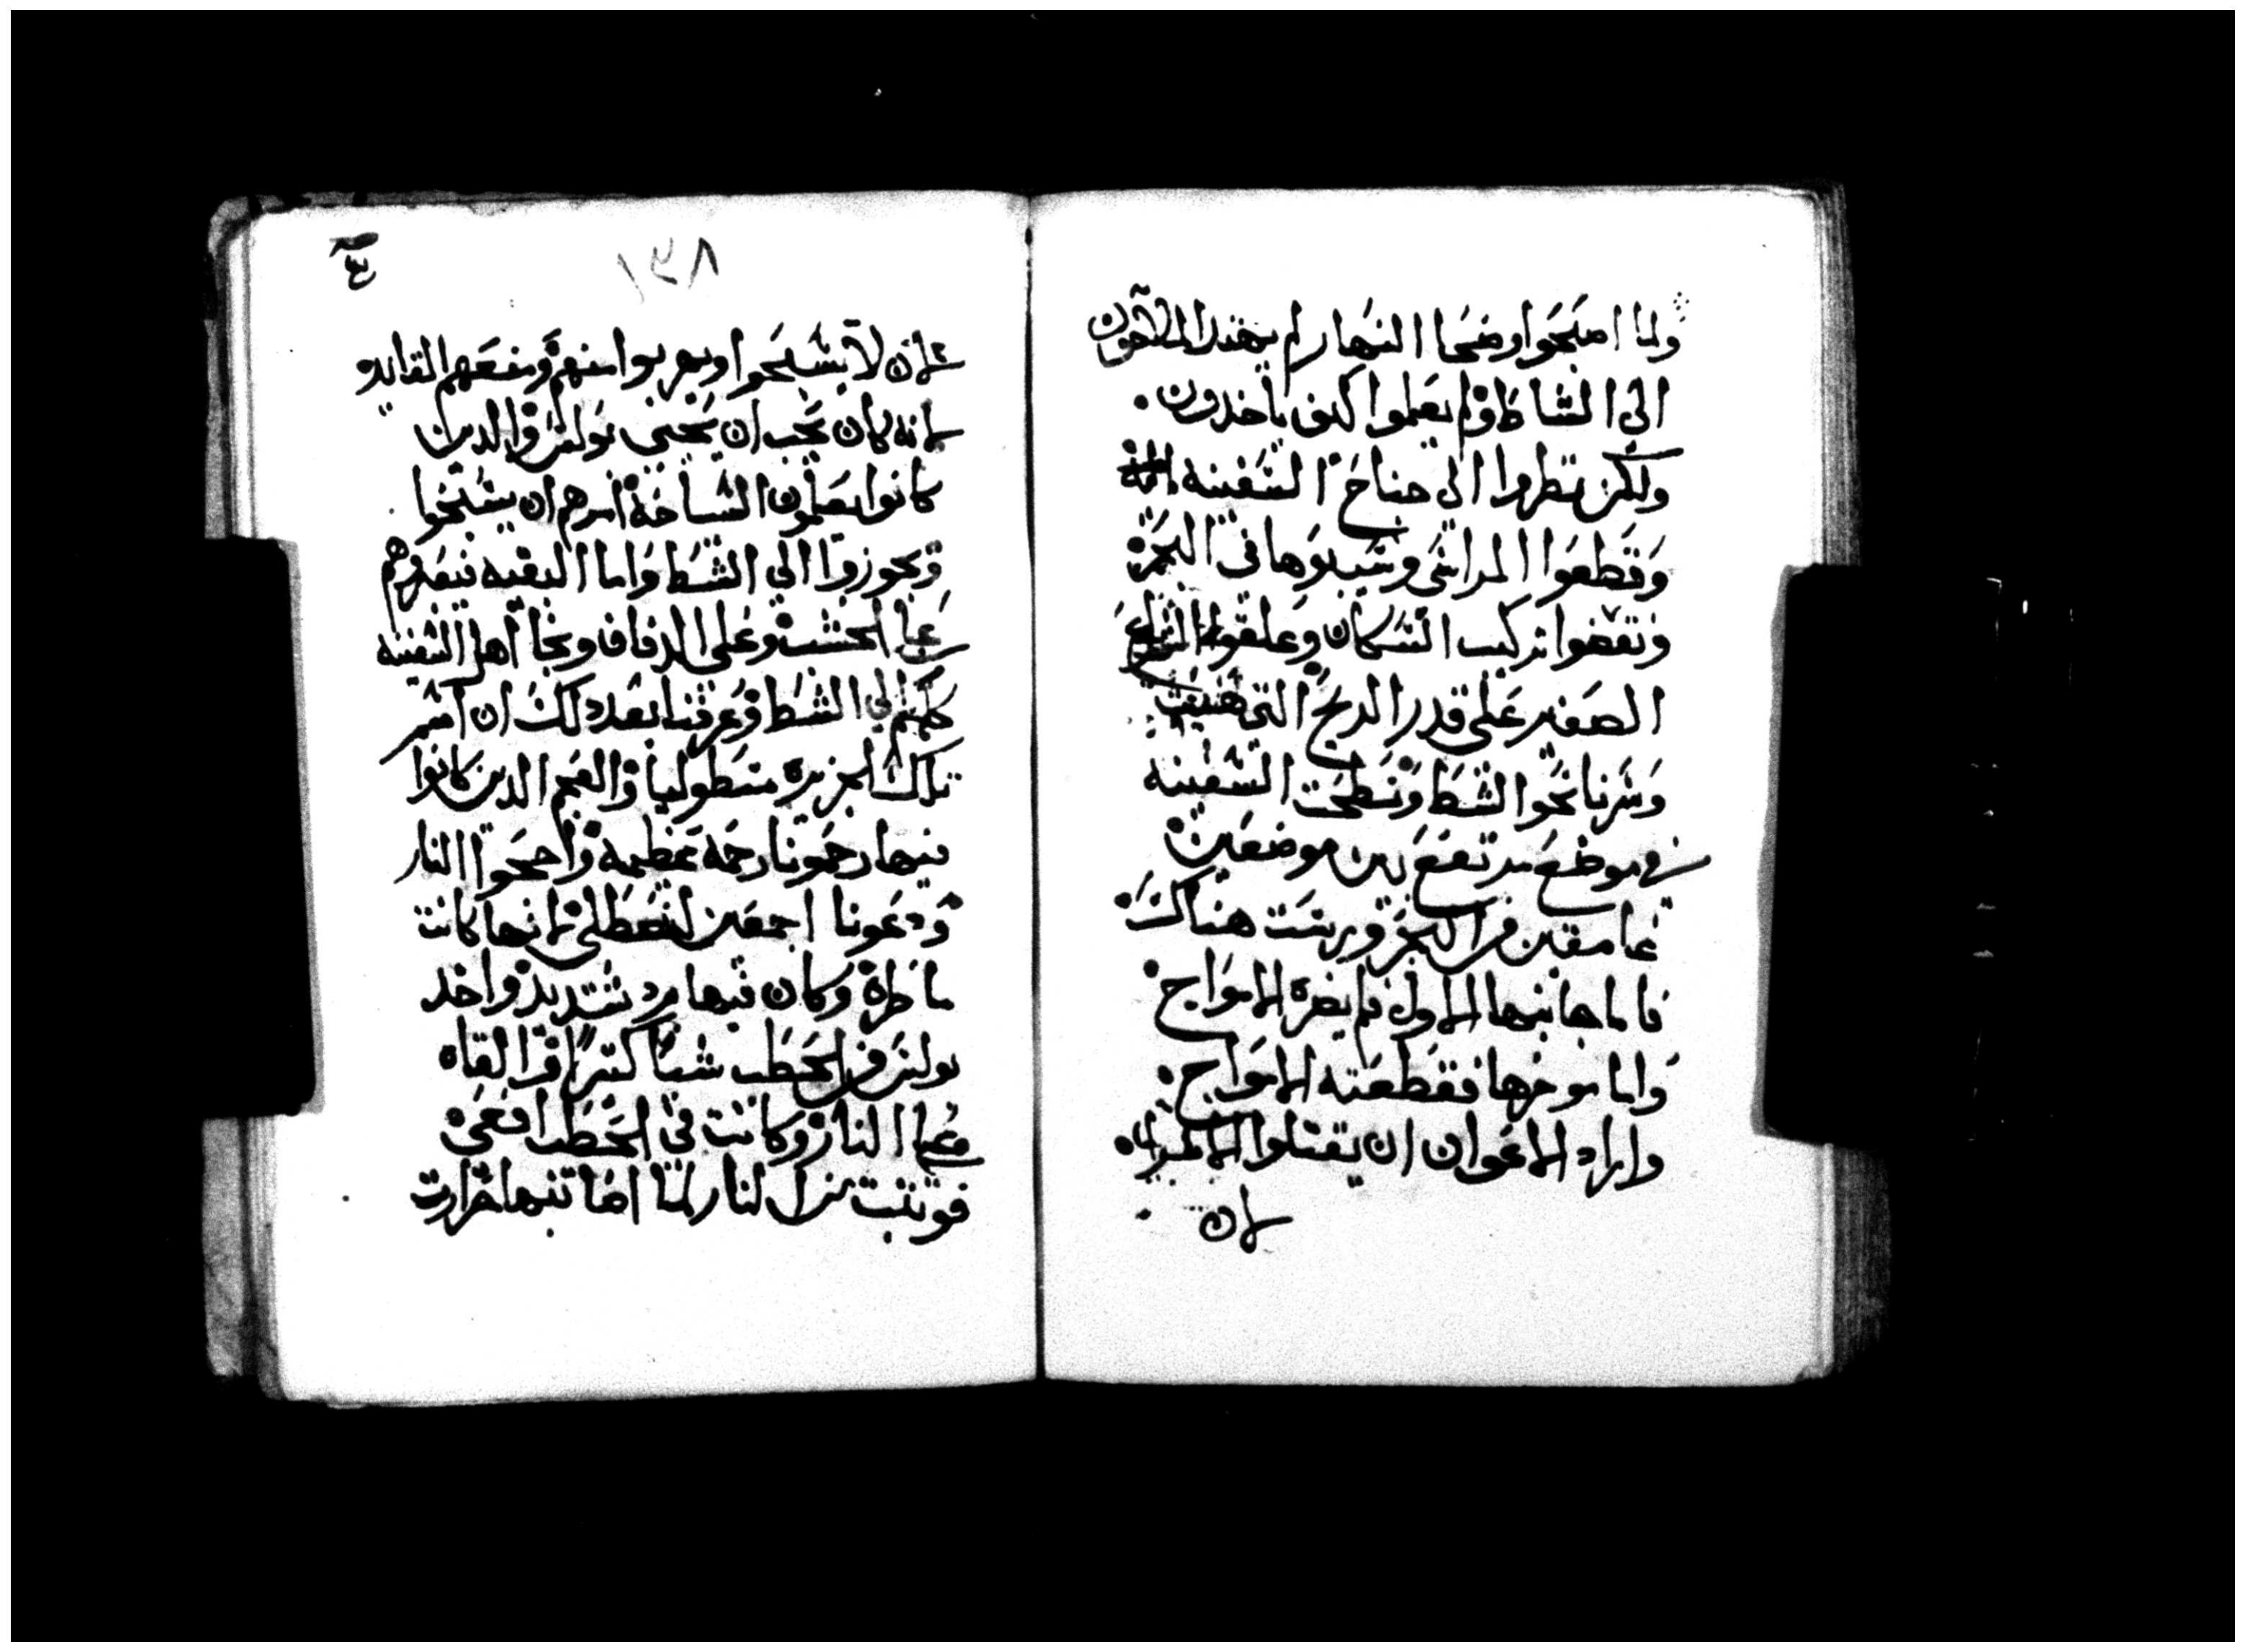 ولما اصبحوا وضحا النهار لم يهتدا الملاحون
الى الشاط ولم يعلموا كيف ياخدون
ولكن نظروا الى جناح السفينه
وقطعوا المراسي وسيبوها في البحر
ونقضوا تركيب السكان وعلقوا الشراع
الصغير على قدر الريح التي
وسرنا نحوا الشط ونطحت السفينه
في موضع مرتفع بين موضعين
عامقين من البحر ورست هناك
فاما جانبها الاول فلم يضره الامواج
واما موخرها فقطعته الامواج
واراد الاعوان ان يقتلوا الاسرا
لان
١٣٨
لان لا يسبحوا ويهربوا منهم ومنعهم القايد
لانه كان يحب ان يحيي بولس والدين
كانوا يعلمون السباحة امرهم ان يسبحوا
ويجوزوا الي الشط واما البقيه فبعدوهم
على الخشب وعلى الدفاف ونجا اهل السفينه
كلهم الي الشط وعرفنا بعد دلك ان اسم
تلك الجزيره منطوليا والعجم الدين كانوا
فيها رحمونا رحمه عظيمه واججوا النار
ودعونا اجمعين لنصطلي لانها كانت
ماطرة وكان فيها برد شديد واخد
بولس من الحطب شيا كتيرا والقاه
على النار وكانت في الحطب افعى
فوثبت من النار لما اصابتها حرارت